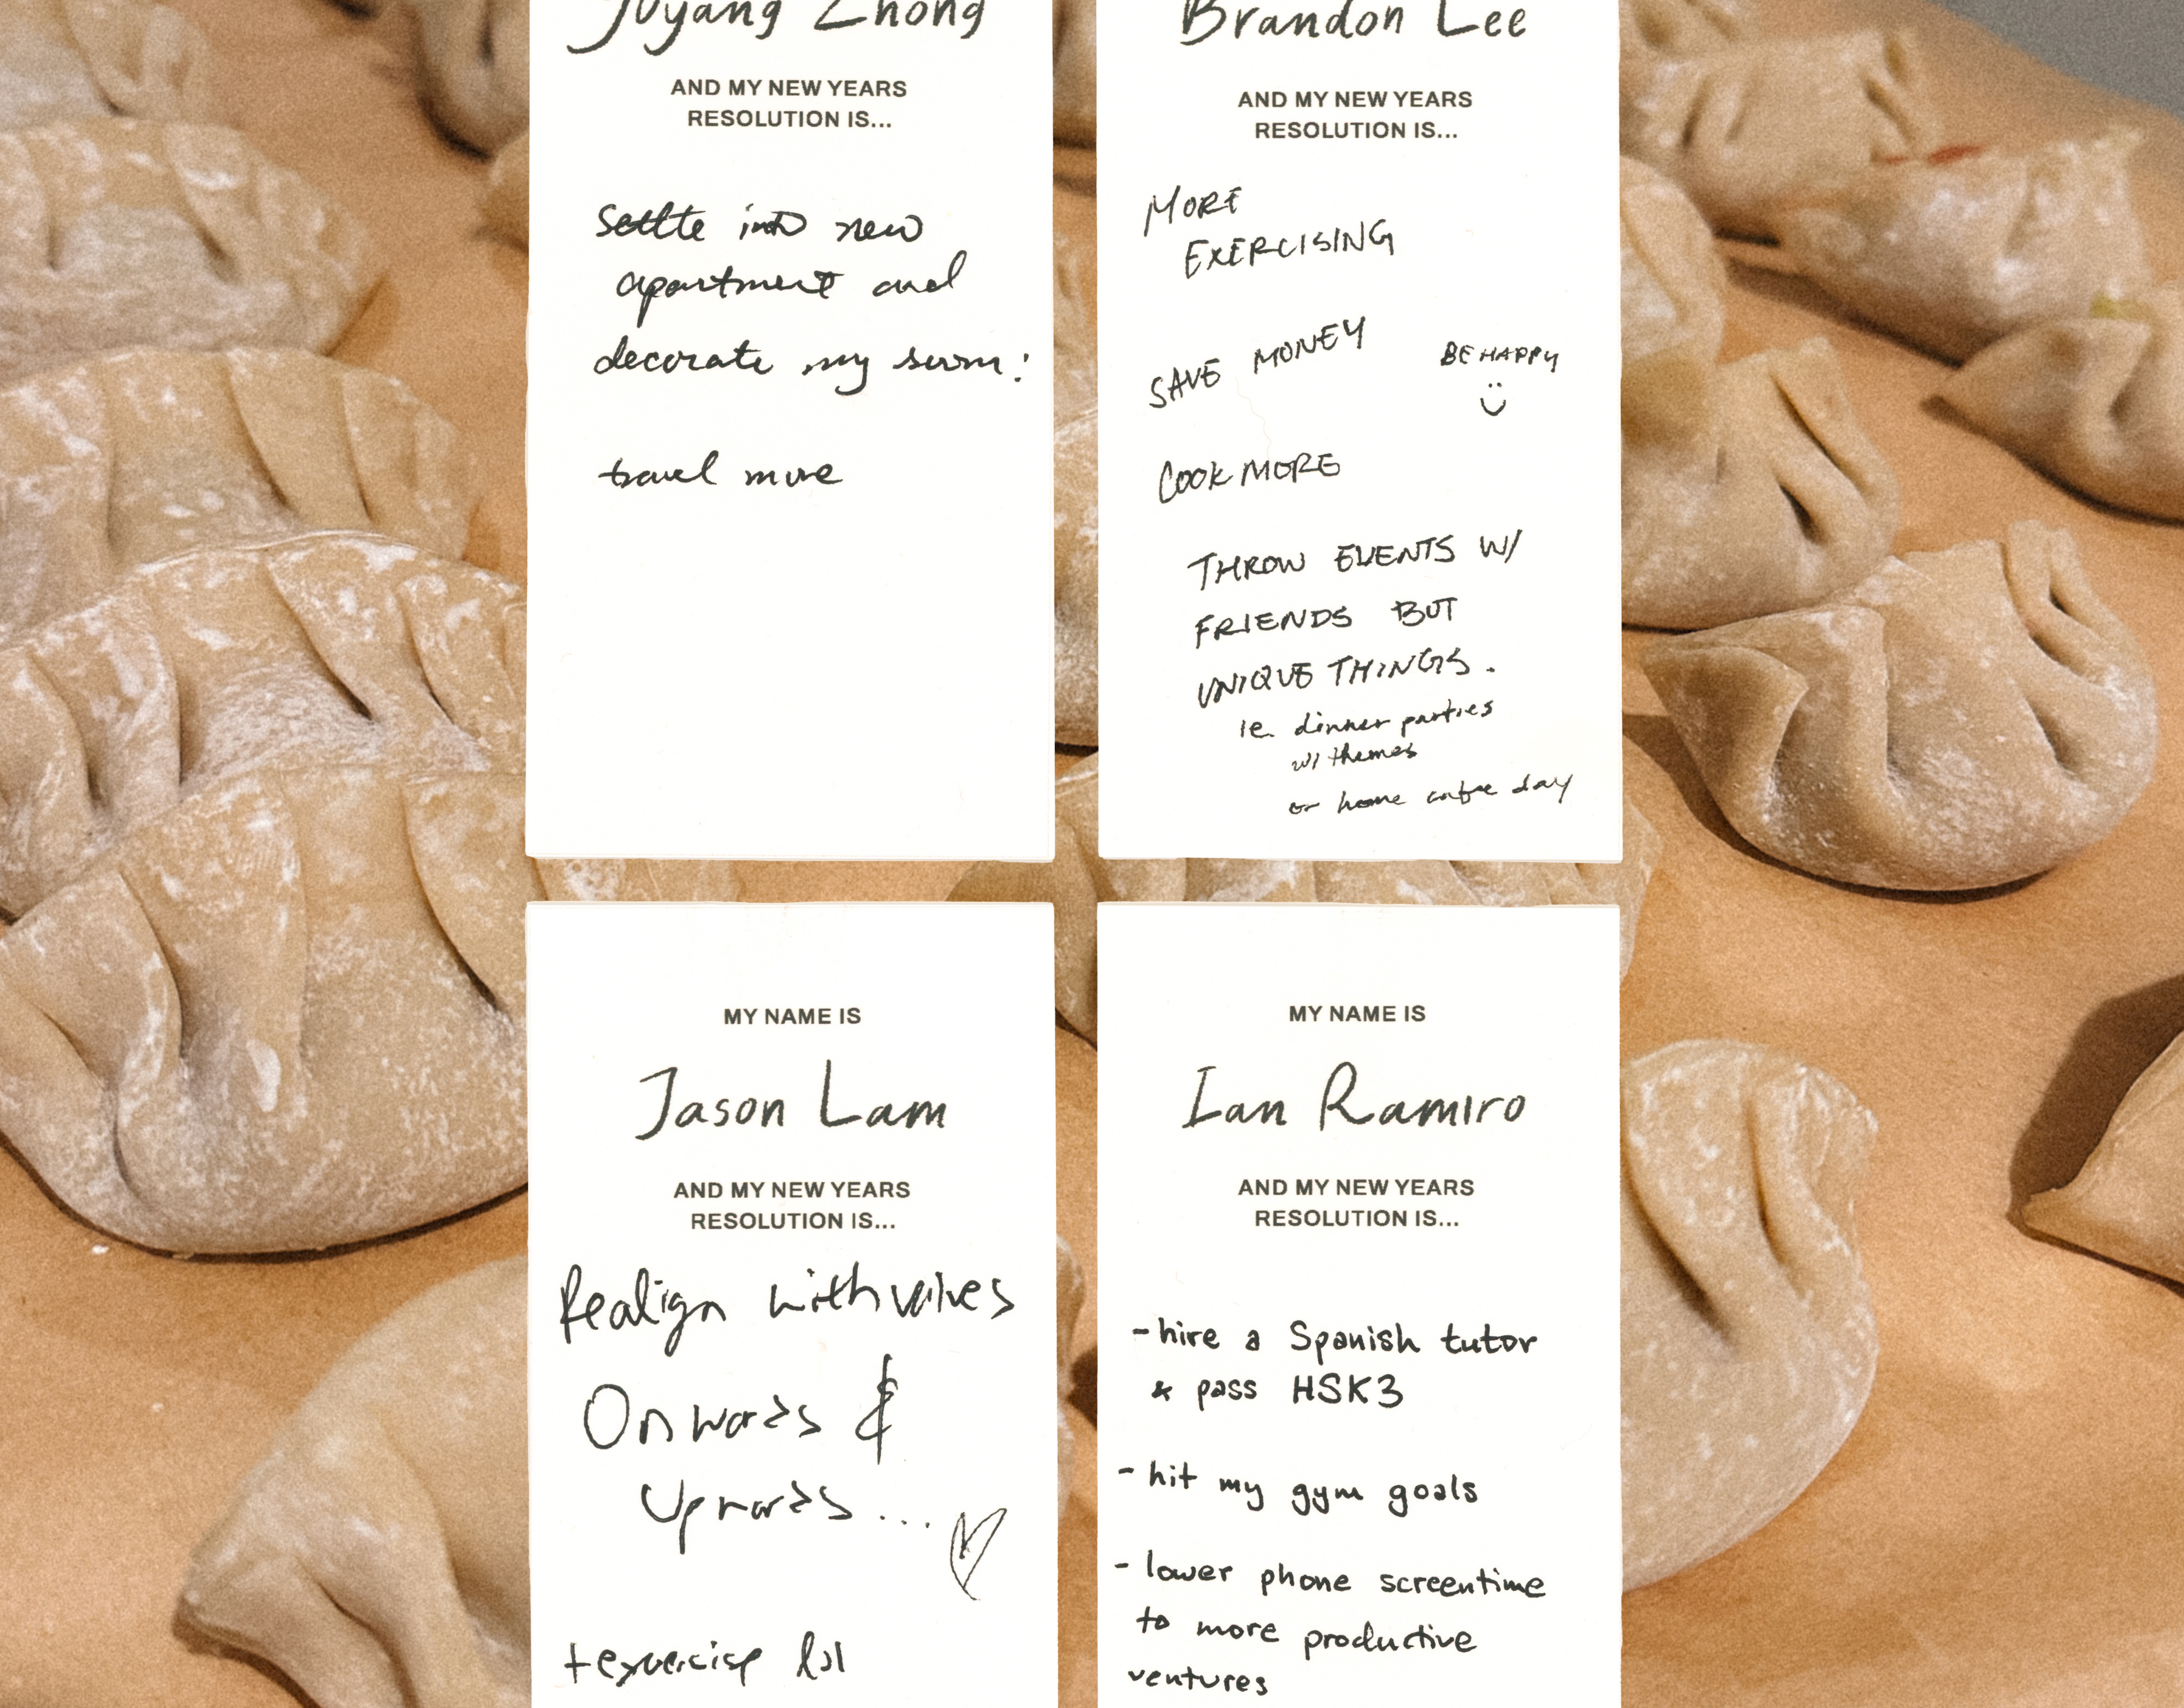 Juyang Zhong
AND MY NEW YEARS
RESOLUTION IS...
Settle into new
apartment and
decorate my room!
travel more
Brandon Lee
AND MY NEW YEARS
RESOLUTION IS...
MORE
EXERCISING
SAVE MONEY
BE HAPPY
COOK MORE
THROW EVENTS W/
FRIENDS BUT
UNIQUE THINGS.
ie. dinner parties
w/ themes
or home coffee day
MY NAME IS
Jason Lam
AND MY NEW YEARS
RESOLUTION IS...
Realign with values
Onwards &
Upwards...
+exercise lol
MY NAME IS
Ian Ramiro
AND MY NEW YEARS
RESOLUTION IS...
- hire a Spanish tutor
& pass HSK3
- hit my gym goals
- lower phone screentime
to more productive
ventures